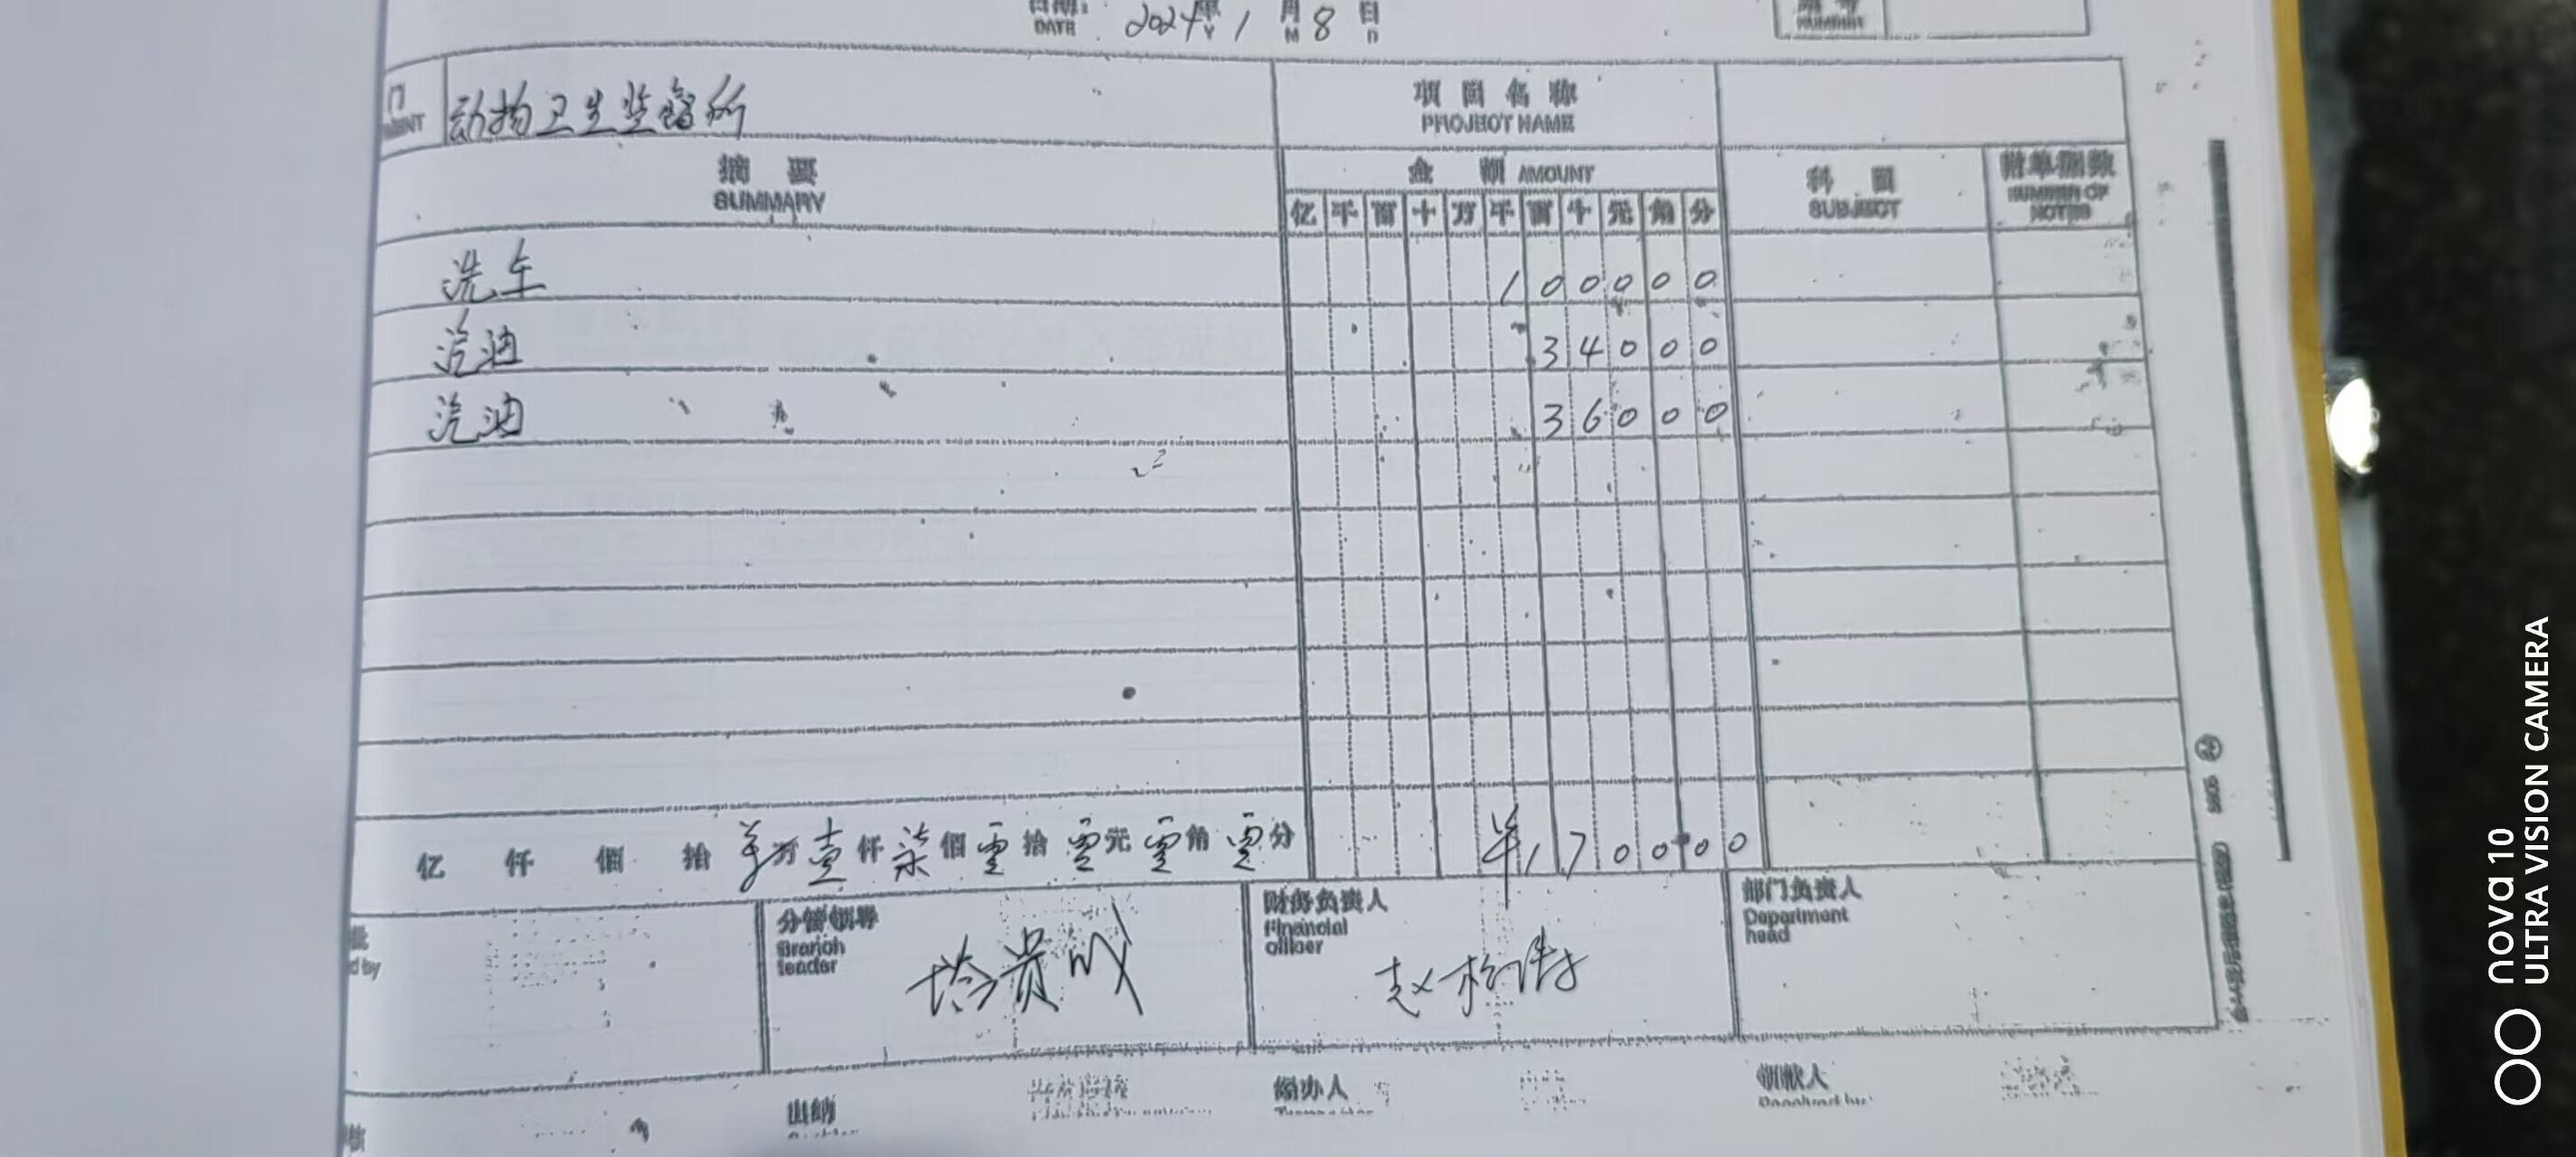 日期: 2024年1月8日
DATE Y M D
NUMBER
门 动物卫生监督所 项目名称
MENT PROJECT NAME
摘要 金额 AMOUNT 科目 附单据数
SUMMARY 亿 千 百 十 万 千 百 十 元 角 分 SUBJECT NUMBER OF NOTES
洗车 1 0 0 0 0 0
汽油 3 4 0 0 0
汽油 3 6 0 0 0
亿 仟 佰 拾 万 壹仟 柒佰 零拾 零元 零角 零分 ¥ 1 7 0 0 0 0
批 分管领导 财务负责人 部门负责人
d by Branch leader Financial officer Department head
贵成 赵
出纳 经办人 领款人
Received by
nova 10
ULTRA VISION CAMERA